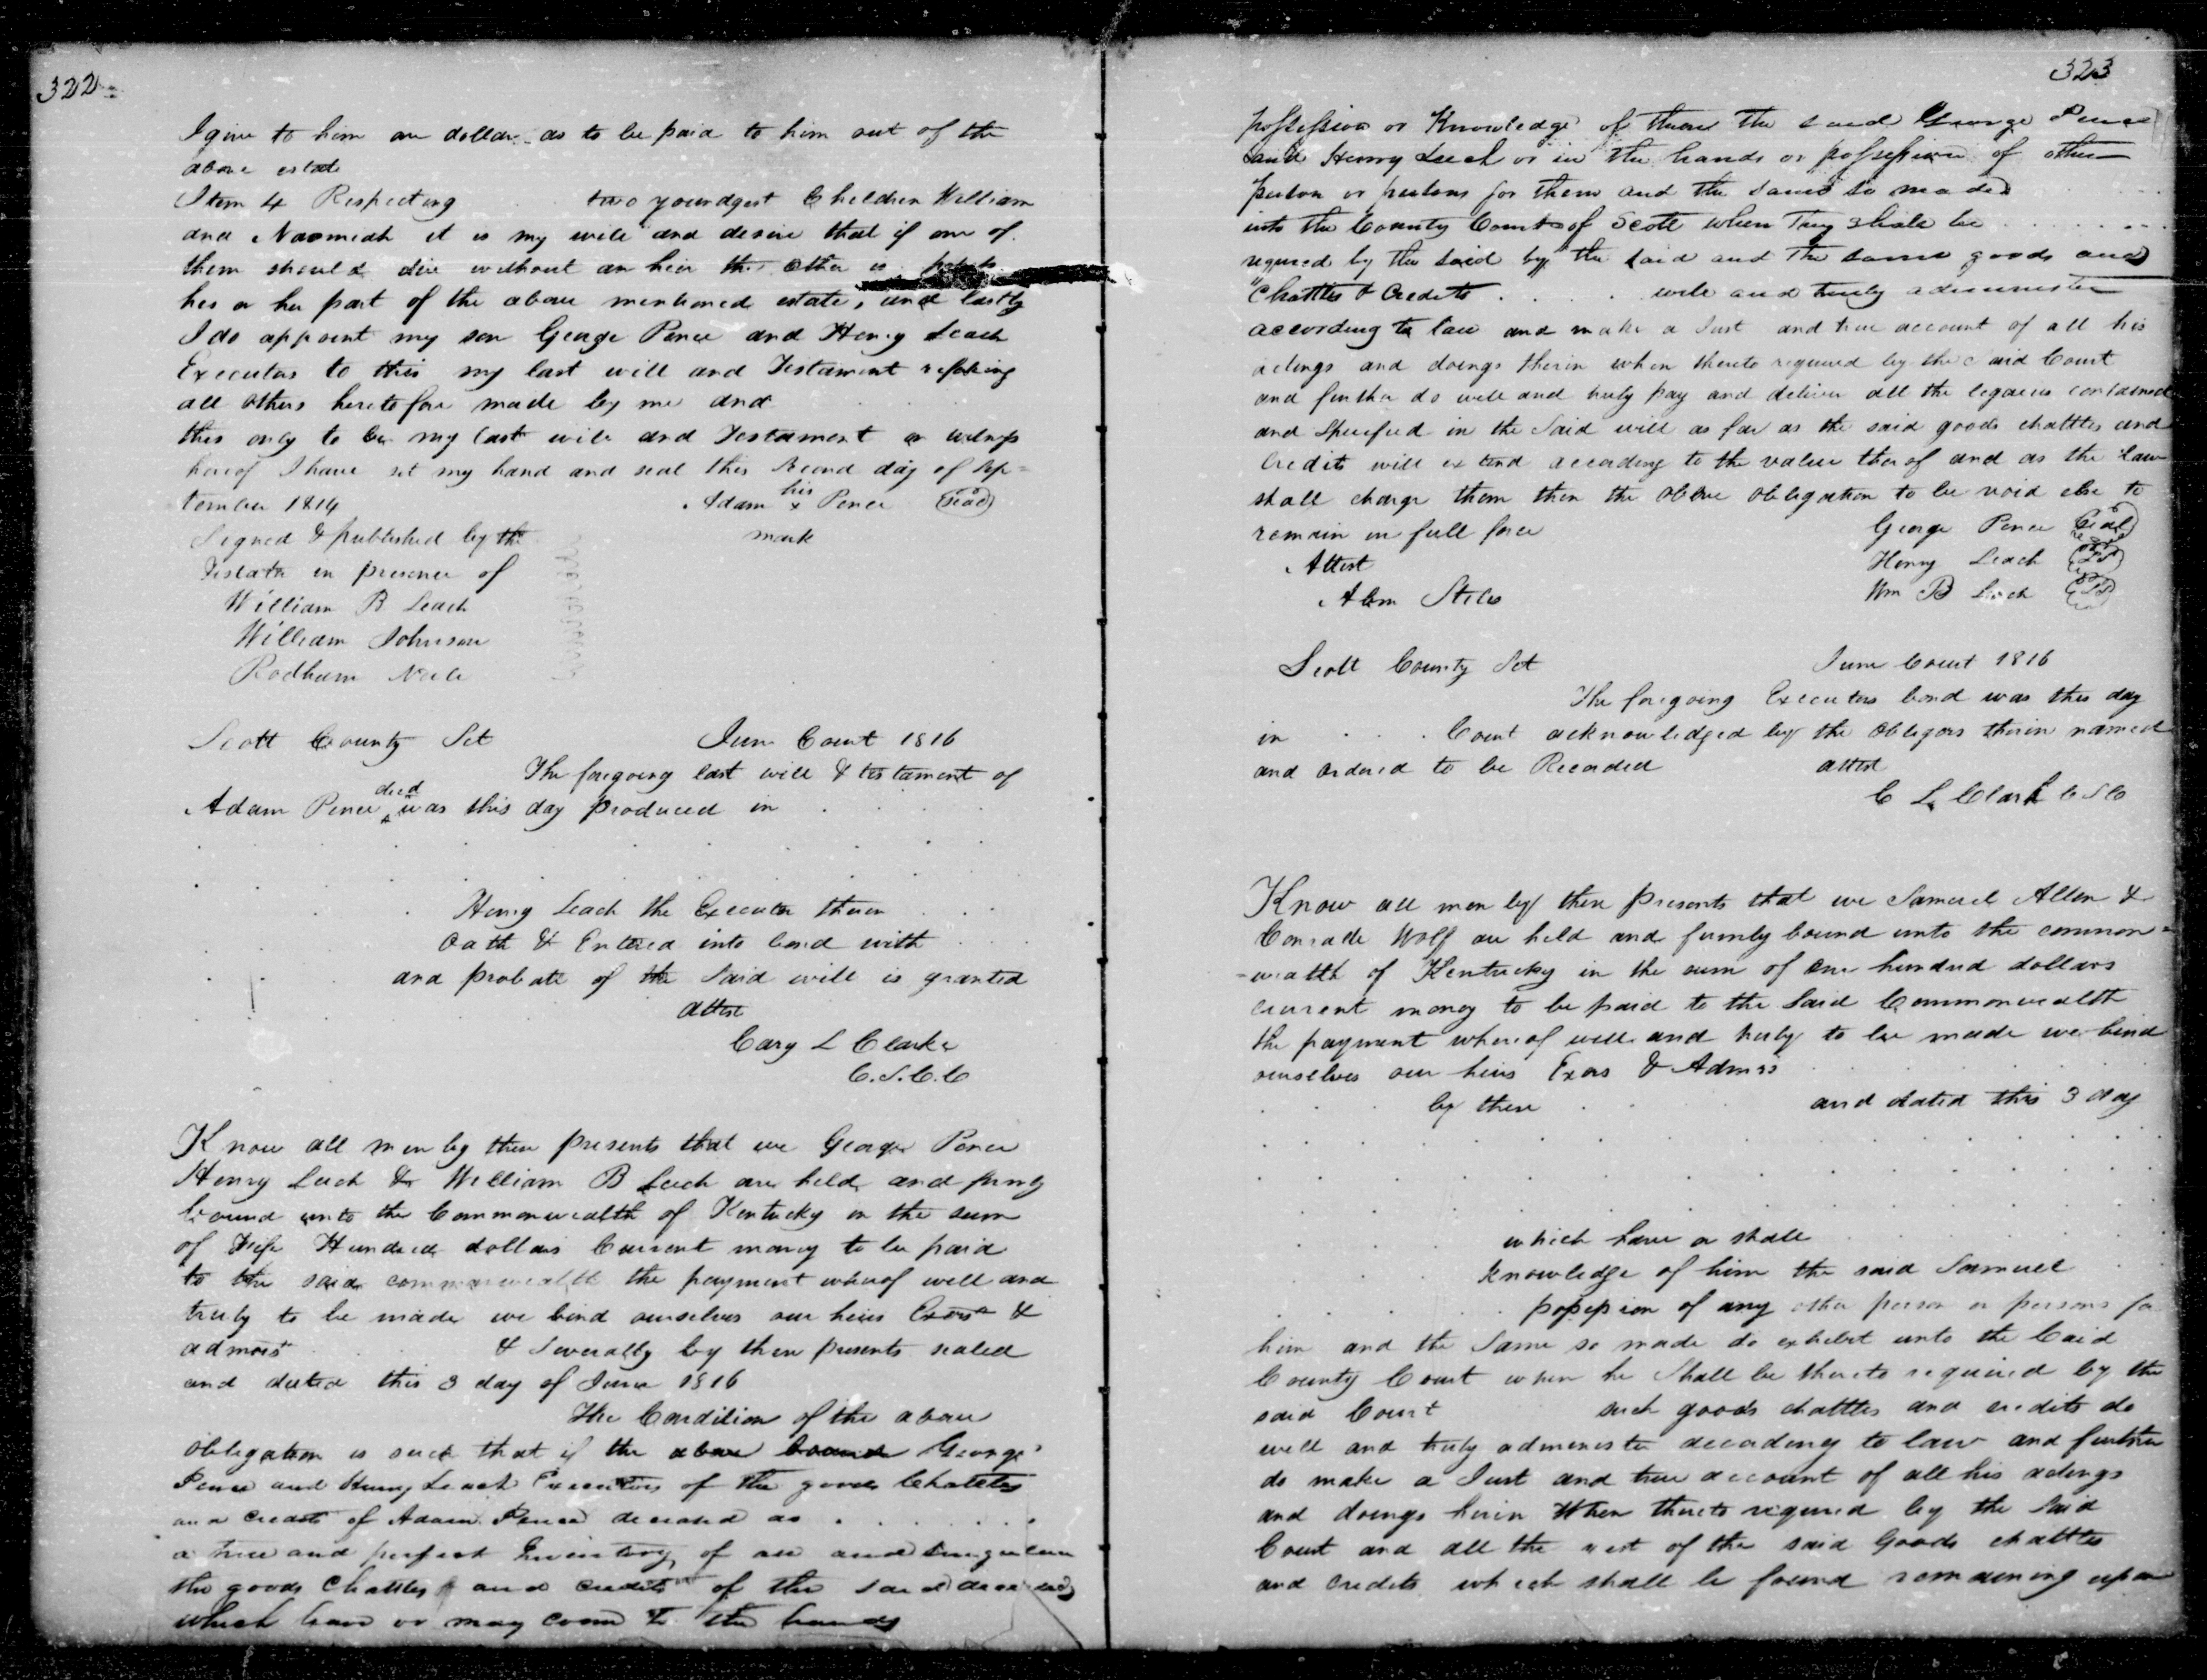 322
I give to him one dollar as to be paid to him out of the
above estate
Item 4 Respecting two youndgest Children William
and Naomiah it is my will and desire that if one of
them should die without an heir the other is
his or her part of the above mentioned estate, and lastly
I do appoint my son George Pence and Henry Leach
Executors to this my last will and Testament
all others heretofore made by me and
this only to be my last will and Testament in witness
hereof I have set my hand and seal this Second day of Sep=
tember 1814 Adam his x Pence (Seal)
mark
Signed & published by the
Testator in presence of
William B Leach
William Johnson
Rodham Neele
Scott County Sct June Court 1816
The foregoing last will & testament of
Adam Pence decd was this day produced in
Henry Leach the Executor therein
Oath & Entered into bond with
and probate of the Said will is granted
attest
Cary L Clarke
C.S.C.C
Know all men by these presents that we George Pence
Henry Leach & William B Leach are held and firmly
bound unto the Commonwealth of Kentucky in the sum
of Hundred dollars Current money to be paid
to the said commonwealth the payment whereof well and
truly to be made we bind ourselves our heirs Exors &
admors & Severally by these presents sealed
and dated this 3 day of June 1816
The Condition of the above
obligation is such that if the above bound George
Pence and Henry Leach Executors of the goods Chattles
and credits of Adam Pence deceased do
a true and perfect Inventory of all and singular
the goods Chattles and credits of the said deceased
which have or may come to the hands
323
possession or Knowledge of them the said George Pence
and Henry Leech or in the hands or possession of other
person or persons for them and the same so made
into the County Court of Scott when They shall be
required by the said by the said and The same goods and
Chattles & Credits well and truly administer
according to law and make a Just and true account of all his
actings and doings therein when thereto required by the said Court
and further do well and truly pay and deliver all the legacies contained
and Specified in the Said will as far as the said goods chattles and
Credits will extend according to the value thereof and as the law
shall charge them then the above obligation to be void else to
remain in full force George Pence (Seal)
Attest Henry Leach (Seal)
Abm Stiles Wm B Leach (Seal)
Scott County Sct June Court 1816
The foregoing Executors bond was this day
in Court acknowledged by the obligors therin named
and ordered to be Recorded attest
C L Clark C S C
Know all men by these presents that we Samuel Allen &
Conrade Wolf are held and firmly bound unto the common=
=wealth of Kentucky in the sum of one hundred dollars
current money to be paid to the Said Commonwealth
the payment whereof well and truly to be made we bind
ourselves our heirs Exors & Admrs
by these and dated this 3 day
which have or shall
knowledge of him the said Samuel
possession of any other person or persons for
him and the Same so made do exhibit unto the Said
County Court when he Shall be thereto required by the
said Court such goods chattles and credits do
well and truly administer according to law and further
do make a Just and true account of all his actings
and doings herin When thereto required by the Said
Court and all the rest of the said Goods chattles
and credits which shall be found remaining upon